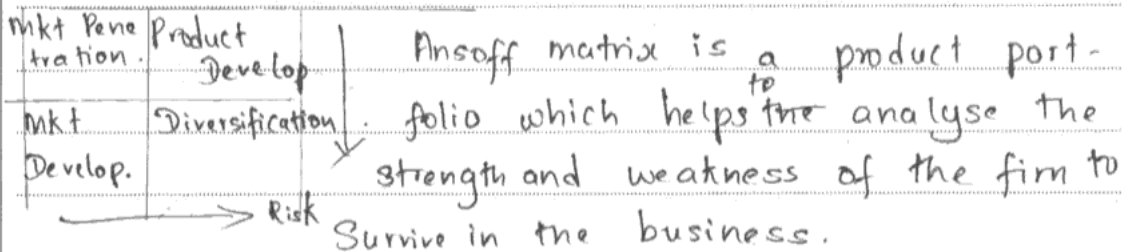 mkt Pene
tration.
Product
Develop
mkt
Develop.
Diversification.
Risk
Ansoff matrix is a product port-
folio which helps to the analyse the
strength and weakness of the firm to
Survive in the business.